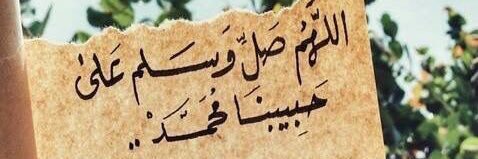 اللَّهُم صَلِّ وَسَلم عَلىٰ
حَبِيبنَا مُحَمَّدْ..